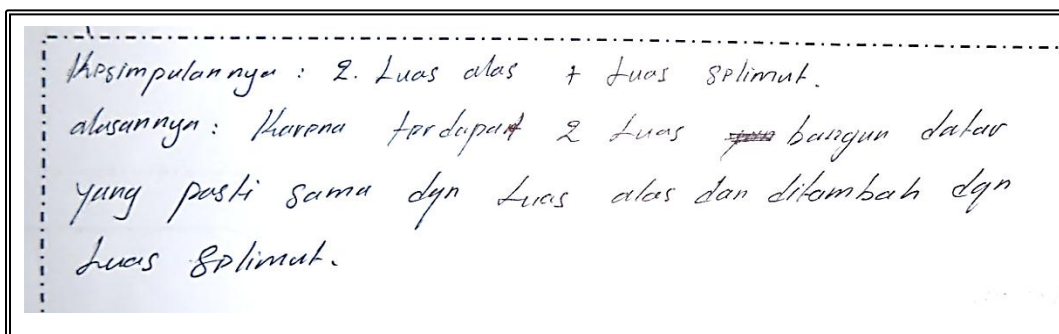 Kesimpulannya : 2. Luas alas + Luas Selimut.
alasannya : Karena terdapat 2 Luas bangun datar
yang pasti sama dgn Luas alas dan ditambah dgn
Luas Selimut.